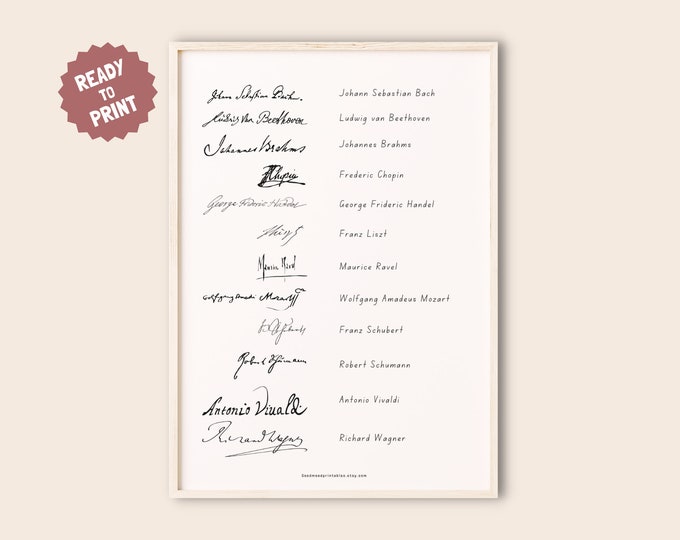 READY
TO
PRINT
Johann Sebastian Bach. Johann Sebastian Bach
Ludwig van Beethoven Ludwig van Beethoven
Johannes Brahms Johannes Brahms
Chopin Frederic Chopin
George Frideric Handel George Frideric Handel
Franz Liszt
Maurice Ravel Maurice Ravel
Mozart Wolfgang Amadeus Mozart
Franz Schubert
Robert Schumann Robert Schumann
Antonio Vivaldi Antonio Vivaldi
Richard Wagner Richard Wagner
Goodmoodprintables.etsy.com